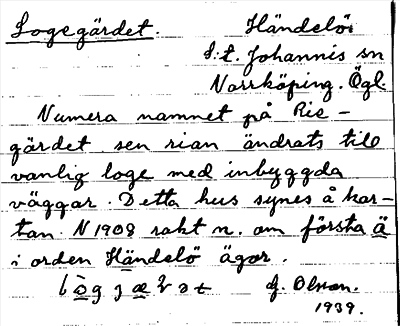 Logegärdet. Händelö
S:t Johannis sn
Norrköping. Ögl.
Numera namnet på Rie-
gärdet sen rian ändrats till
vanlig loge med inbyggda
väggar. Detta hus synes å kar-
tan N 1908 rakt n. om första ä
i orden Händelö ägor.
G. Olson.
1939.